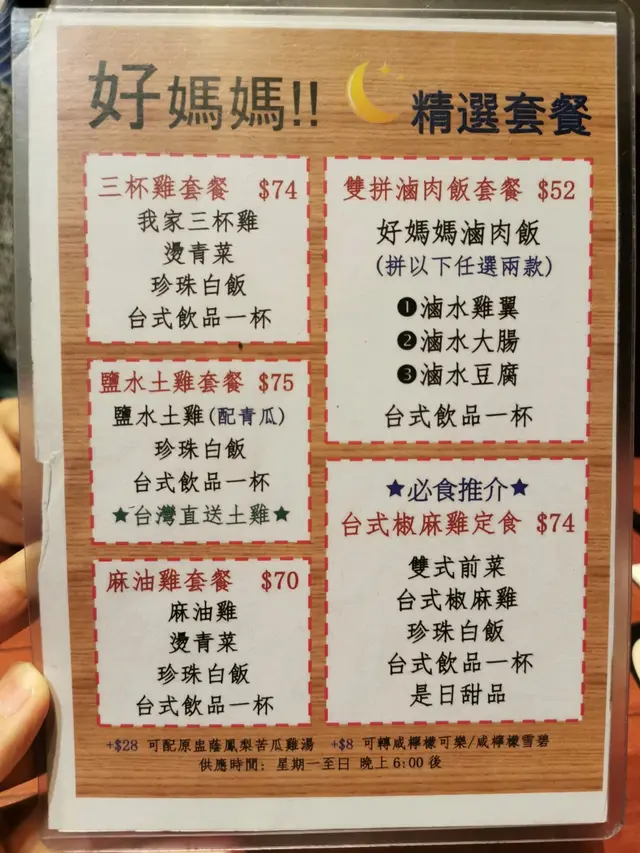 好媽媽!!
精選套餐
三杯雞套餐 $74
我家三杯雞
燙青菜
珍珠白飯
台式飲品一杯
鹽水土雞套餐 $75
鹽水土雞(配青瓜)
珍珠白飯
台式飲品一杯
★台灣直送土雞★
麻油雞套餐 $70
麻油雞
燙青菜
珍珠白飯
台式飲品一杯
雙拼滷肉飯套餐 $52
好媽媽滷肉飯
(拼以下任選兩款)
❶滷水雞翼
❷滷水大腸
❸滷水豆腐
台式飲品一杯
★必食推介★
台式椒麻雞定食 $74
雙式前菜
台式椒麻雞
珍珠白飯
台式飲品一杯
是日甜品
+$28 可配原盅蔭鳳梨苦瓜雞湯 +$8 可轉咸檸檬可樂/咸檸檬雪碧
供應時間: 星期一至日 晚上6:00後